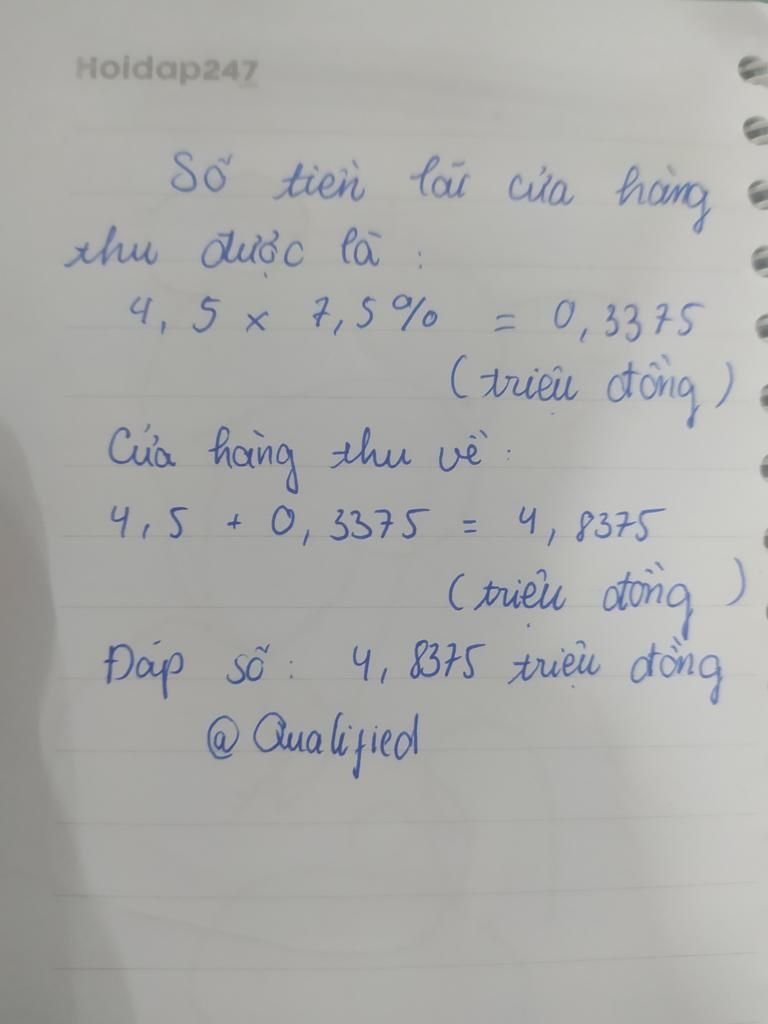 Hoidap247
Số tiền lãi cửa hàng
thu được là :
4,5 x 7,5% = 0,3375
(triệu đồng)
Cửa hàng thu về :
4,5 + 0,3375 = 4,8375
(triệu đồng)
Đáp số : 4,8375 triệu đồng
@ Qualified